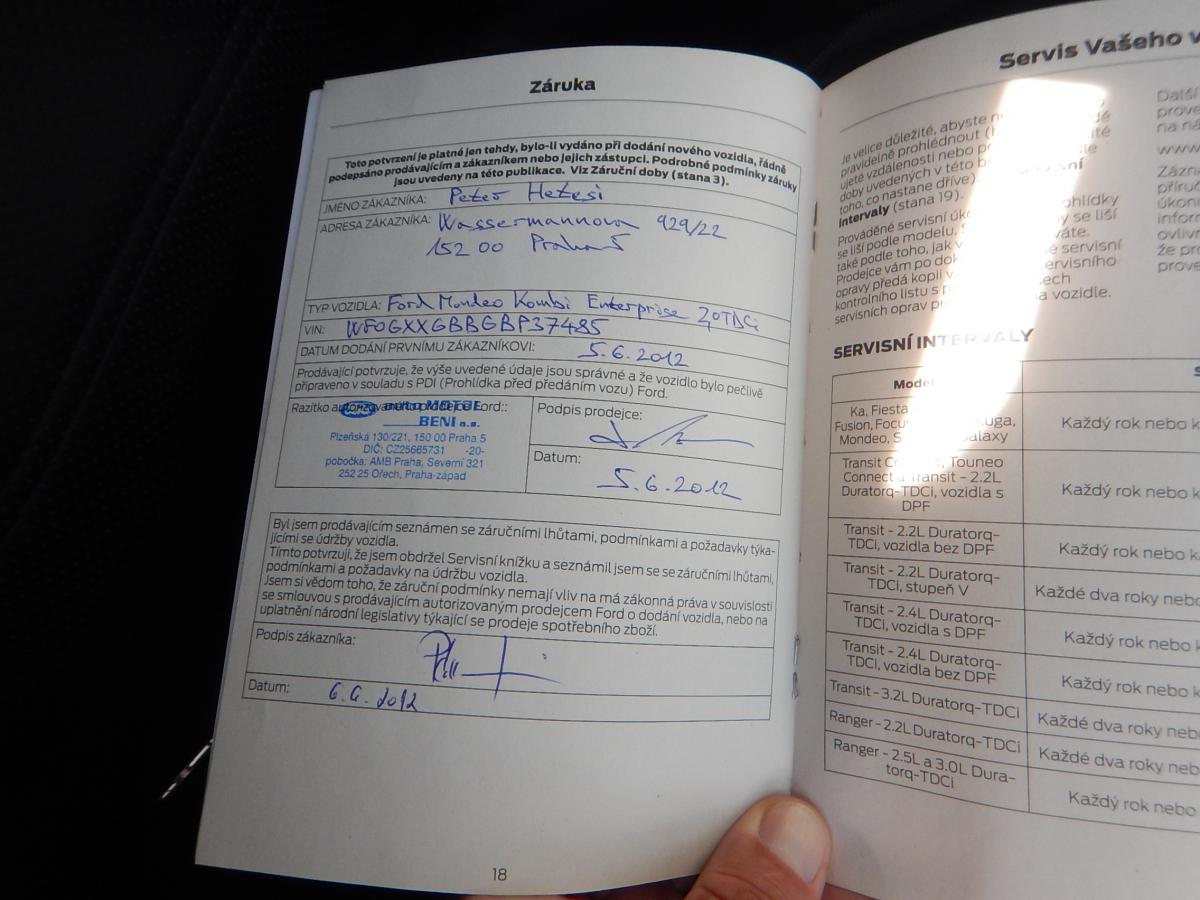 Záruka
Toto potvrzení je platné jen tehdy, bylo-li vydáno při dodání nového vozidla, řádně
podepsáno prodávajícím a zákazníkem nebo jejich zástupci. Podrobné podmínky záruky
jsou uvedeny na této publikace. Viz Záruční doby (stana 3).
JMÉNO ZÁKAZNÍKA: Peter Hetesi
ADRESA ZÁKAZNÍKA: Wassermannova 929/22
152 00 Praha 5
TYP VOZIDLA: Ford Mondeo Kombi Enterprise 2,0TDCi
VIN: WF0GXXGBBGBP37485
DATUM DODÁNÍ PRVNÍMU ZÁKAZNÍKOVI: 5.6.2012
Prodávající potvrzuje, že výše uvedené údaje jsou správné a že vozidlo bylo pečlivě
připraveno v souladu s PDI (Prohlídka před předáním vozu) Ford.
Razítko autorizovaného prodejce Ford::
auto MOTOL
BENI a.s.
Plzeňská 130/221, 150 00 Praha 5
DIČ: CZ25665731 -20-
pobočka: AMB Praha, Severní 321
252 25 Ořech, Praha-západ
Podpis prodejce:
Datum:
5.6.2012
Byl jsem prodávajícím seznámen se záručními lhůtami, podmínkami a požadavky týka-
jícími se údržby vozidla.
Tímto potvrzuji, že jsem obdržel Servisní knížku a seznámil jsem se se záručními lhůtami,
podmínkami a požadavky na údržbu vozidla.
Jsem si vědom toho, že záruční podmínky nemají vliv na má zákonná práva v souvislosti
se smlouvou s prodávajícím autorizovaným prodejcem Ford o dodání vozidla, nebo na
uplatnění národní legislativy týkající se prodeje spotřebního zboží.
Podpis zákazníka:
Datum: 6.6.2012
18
Servis Vašeho
Je velice důležité, abyste
pravidelně prohlédnout
ujeté vzdálenosti nebo
doby uvedených v této
toho, co nastane dříve)
Intervaly (stana 19).
Prováděné servisní
se liší podle modelu.
také podle toho, jak servisní
Prodejce vám po servisního
opravy předá kopii
kontrolního listu s
servisních oprav vozidle.
Další
prove
na ná
www
Zázna
příruč
úkoni
infor
ovliv
že pr
prove
SERVISNÍ INTERVALY
Ka, Fiesta,
Fusion, Kuga,
Mondeo, Galaxy
Každý rok nebo k
Transit Touneo
Connect a Transit - 2.2L
Duratorq-TDCi, vozidla s
DPF
Každý rok nebo k
Transit - 2.2L Duratorq-
TDCi, vozidla bez DPF
Každý rok nebo k
Transit - 2.2L Duratorq-
TDCi, stupeň V
Každé dva roky nebo
Transit - 2.4L Duratorq-
TDCi, vozidla s DPF
Každý rok nebo k
Transit - 2.4L Duratorq-
TDCi, vozidla bez DPF
Každý rok nebo k
Transit - 3.2L Duratorq-TDCi
Každé dva roky nebo
Ranger - 2.2L Duratorq-TDCi
Každé dva roky nebo
Ranger - 2.5L a 3.0L Dura-
torq-TDCi
Každý rok nebo